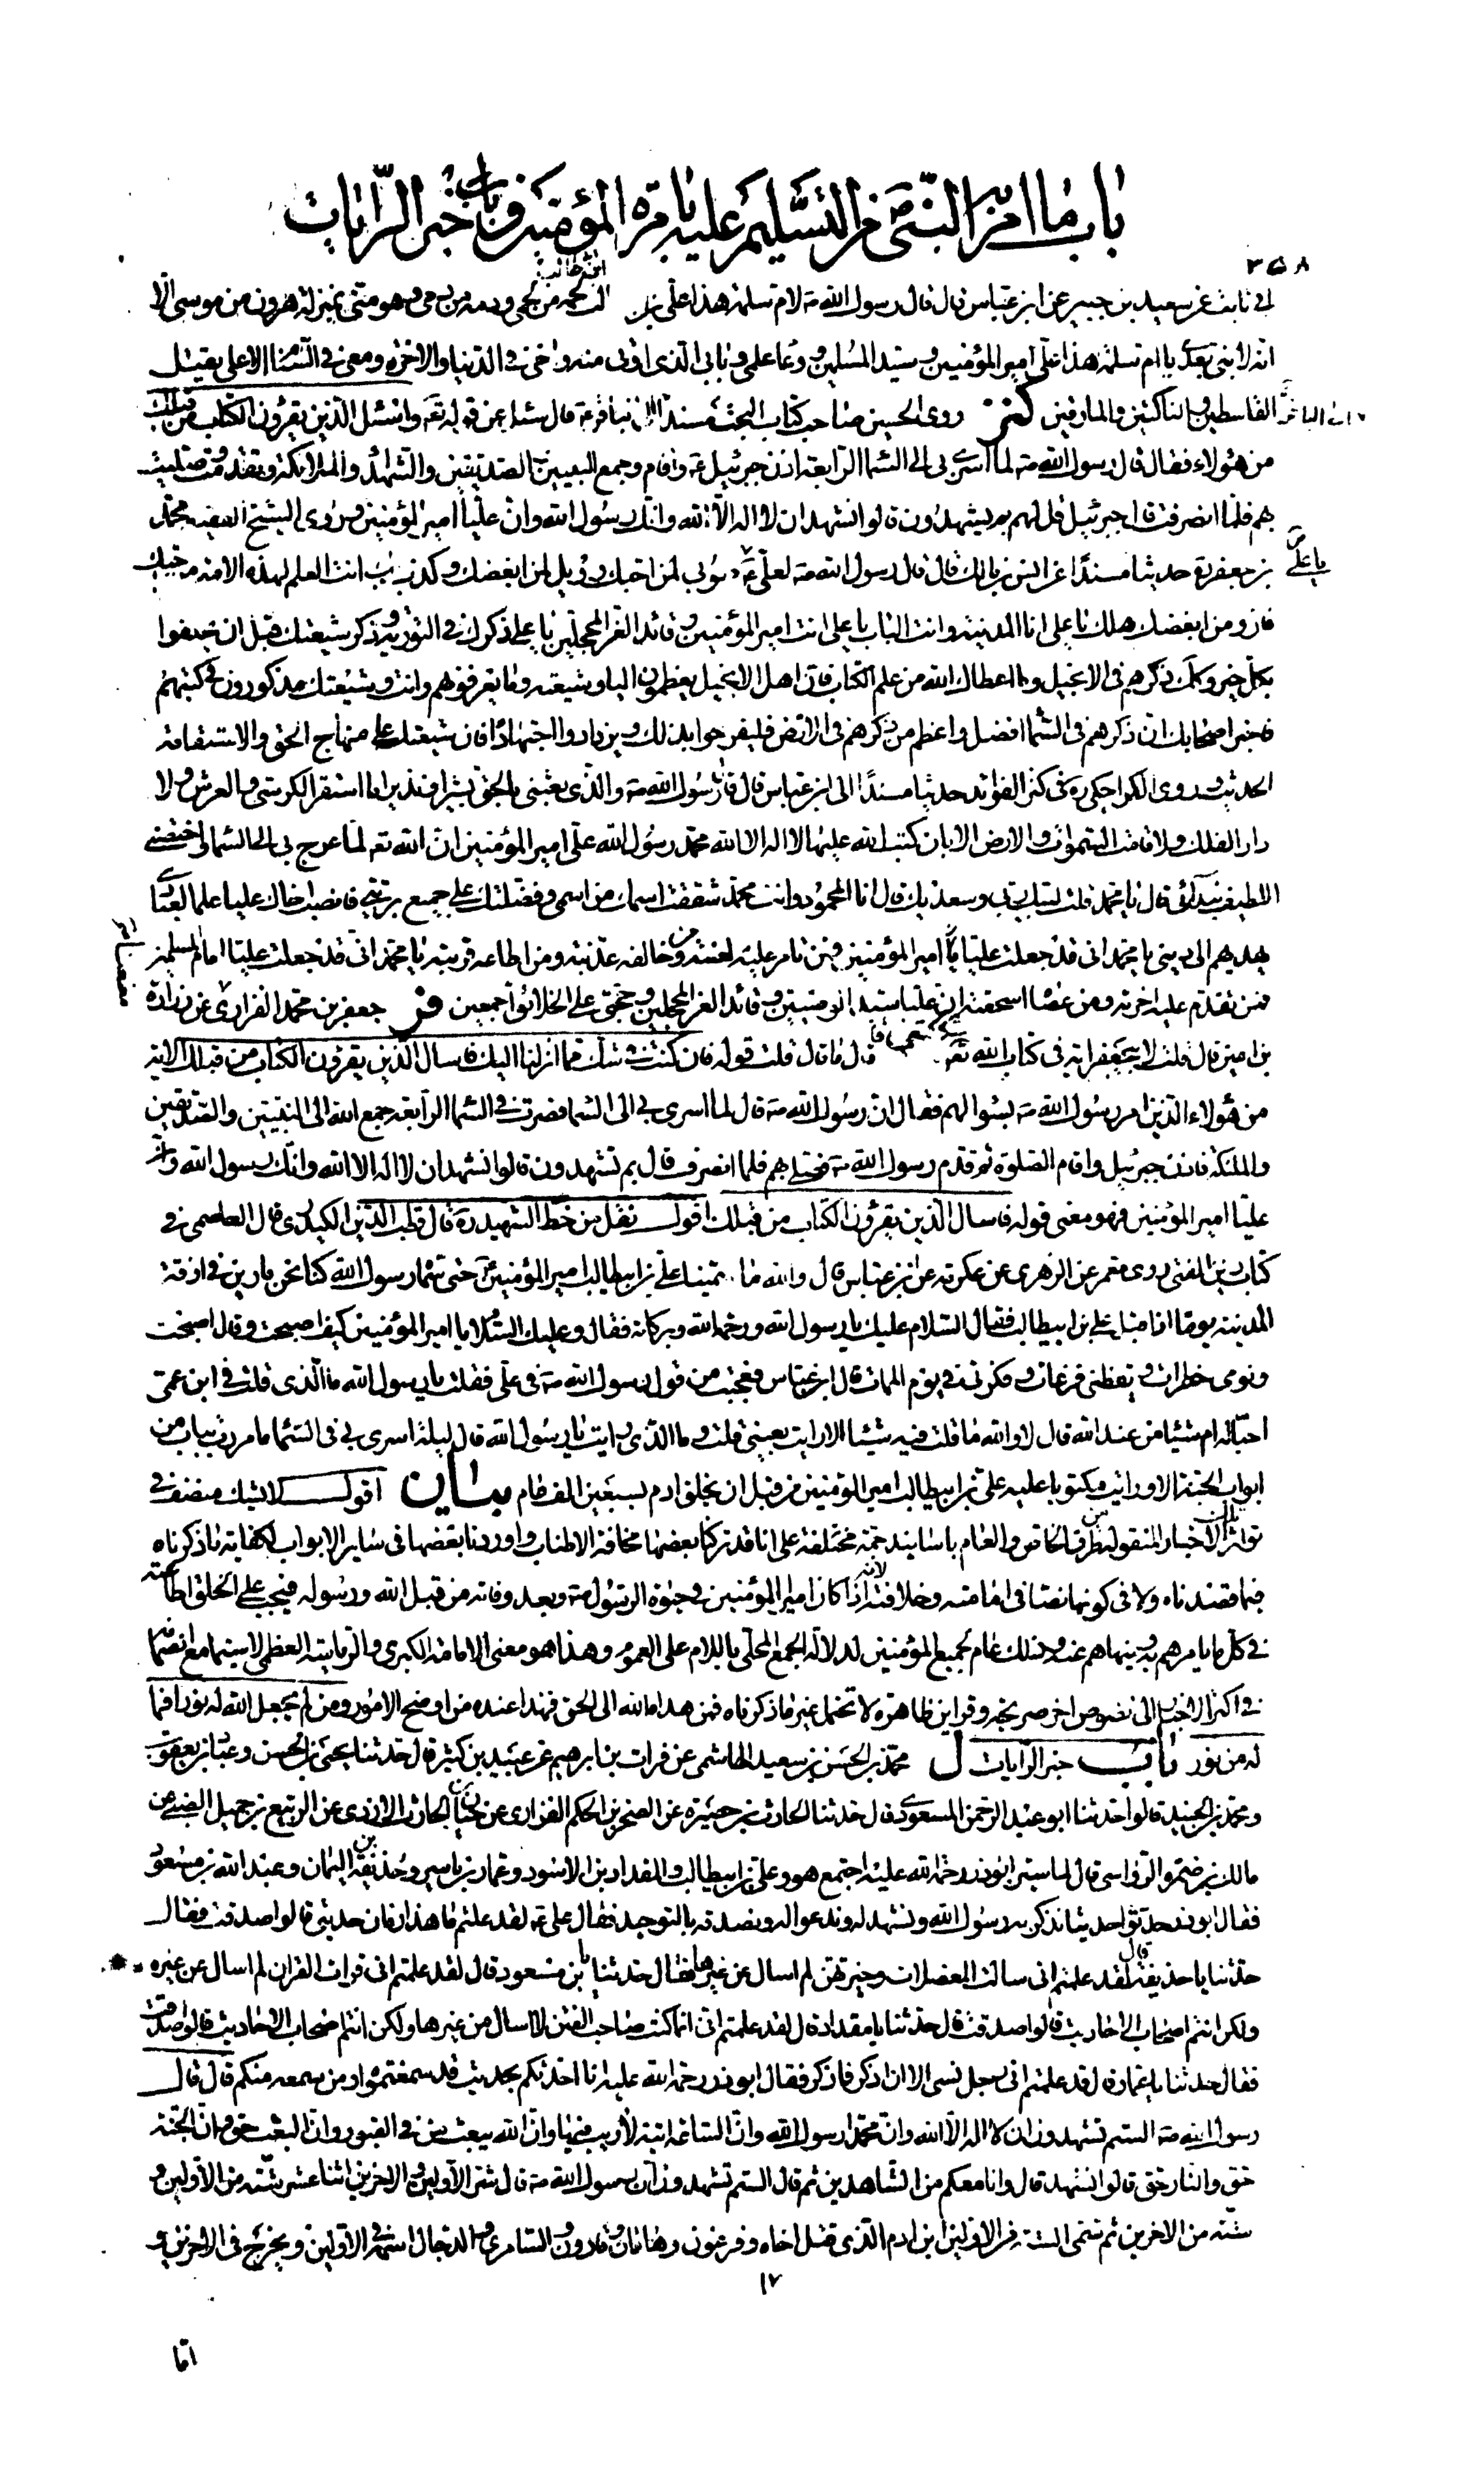 باب ما امر به النبي ص من التسليم عليه بامرة المؤمنين و باب خبر الرايات
٣٥٨
ابي ثابت عن سعيد بن جبير عن ابن عباس قال قال رسول الله ص لام سلمة هذا علي بن ابي طالب لحمه من لحمي ودمه من دمي وهو مني بمنزلة هرون من موسى الا
انه لا نبي بعدي يا ام سلمة هذا علي امير المؤمنين وسيد المسلمين ووعاء علمي وبابي الذي اوتى منه واخي في الدنيا والاخرة ومعي في السنام الاعلى يقتل
القاسطين والناكثين والمارقين كنز روى الحسين صاحب كتاب البحث مسندا الى الباقر ع قال سئل عن قوله تعه واسئل الذين يقرؤن الكتاب من قبلك
من هؤلاء فقال قال رسول الله ص لما اسري بي الى السما الرابعة اذن جبرئيل ع واقام وجمع النبيين والصديقين والشهداء والملائكة وتقدمت وصليت
بهم فلما انصرفت قال جبرئيل قل لهم بم يشهدون قالوا نشهد ان لا اله الا الله وانك رسول الله وان عليا امير المؤمنين وروى الشيخ الفقيه محمد
بن جعفر ره حديثا مسندا عن انس بن مالك قال قال رسول الله ص لعلي ع طوبى لمن احبك وويل لمن ابغضك وكذب بك انت العلم لهذه الامة من احبك
يا علي
فاز ومن ابغضك هلك يا علي انا المدينة وانت الباب يا علي انت امير المؤمنين وقائد الغر المحجلين يا علي ذكرك في التورية وذكر شيعتك قبل ان يخلقوا
بكل خير وكذلك ذكرهم في الانجيل وما اعطاك الله من علم الكتاب فان اهل الانجيل يعظمون اليا وشيعته وما يعرفوهم وانت وشيعتك مذكورون في كتبهم
فخبر اصحابك ان ذكرهم في السما افضل واعظم من ذكرهم في الارض فليفرحوا بذلك ويزدادوا اجتهادا فان شيعتك على منهاج الحق والاستقامة
الحديث وروى الكراجكي ره في كنز الفوائد حديثا مسندا الى ابن عباس قال قال رسول الله ص والذي بعثني بالحق بشيرا ونذيرا ما استقر الكرسي والعرش ولا
دار الفلك ولا قامت السموات والارض الا بان كتب الله عليها لا اله الا الله محمد رسول الله علي امير المؤمنين ان الله تعه لما عرج بي الى السما واختصني
اللطيف بندائه قال يا محمد قلت لبيك ربي وسعديك قال انا المحمود وانت محمد شققت اسمك من اسمي وفضلتك على جميع بريتي فانصب اخاك عليا علما لعبادي
يهديهم الى ديني يا محمد اني قد جعلت عليا امير المؤمنين فمن تامر عليه لعنته ومن خالفه عذبته ومن اطاعه قربته يا محمد اني قد جعلت عليا امام المسلمين
فمن تقدم عليه اخزيته ومن عصاه اسحقته ان عليا سيد الوصيين وقائد الغر المحجلين وحجتي على الخلائق اجمعين فر جعفر بن محمد الفزاري عن زرارة
بن اعين قال قلت لابي جعفر اية في كتاب الله تعه قال ما قال قلت قوله فان كنت في شك مما انزلنا اليك فاسال الذين يقرؤن الكتاب من قبلك الاية
من هؤلاء الذين امر رسول الله ص بسؤالهم فقال ان رسول الله ص قال لما اسرى بي الى السما فصرت في السما الرابعة جمع الله الى النبيين والصديقين
والملئكة فاذن جبرئيل واقام الصلوة ثم قدم رسول الله ص فصلى بهم فلما انصرف قال بم تشهدون قالوا نشهد ان لا اله الا الله وانك رسول الله وان
عليا امير المؤمنين فهو معنى قوله فاسال الذين يقرؤن الكتاب من قبلك اقول نقل من خط الشهيد ره قال قطب الدين الكيدري قال العاصمي في
كتاب زين الفتى روى معمر عن الزهري عن عكرمة عن ابن عباس قال والله ما سمينا علي بن ابيطالب امير المؤمنين حتى سماه رسول الله كنا نحن مارين في ازقة
المدينة يوما اذ اقبل علي بن ابيطالب فقال السلام عليك يا رسول الله ورحمة الله وبركاته فقال وعليك السلام يا امير المؤمنين كيف اصبحت وقال اصبحت
ونومي خطرات ويقظتي فزعات وفكرتي في يوم الممات قال ابن عباس فعجبت من قول رسول الله ص في علي فقلت يا رسول الله ما الذي قلت في ابن عمي
احبا له ام شيئا من عند الله قال لا والله ما قلت فيه شيئا الا رايت بعيني قلت وما الذي رايت يا رسول الله قال ليلة اسرى بي في السما ما مررت بباب من
ابواب الجنة الا ورايت مكتوبا عليه علي بن ابيطالب امير المؤمنين من قبل ان يخلق ادم بسبعين الف عام بيان اقول لا شك منصف في
تواتر تلك الاخبار المنقولة من طرق الخاص والعام باسانيد جمة مختلفة على انا قد تركنا بعضها مخافة الاطناب واوردنا بعضها في ساير الابواب لكفاية ما ذكرناه
فيما قصدناه ولا في كونها نصا في امامته وخلافته لانه اذا كان امير المؤمنين في حيوة الرسول ص وبعد وفاته من قبل الله ورسوله فيجب على الخلق اطاعته
في كل ما يامرهم به وينهاهم عنه وذلك عام لجميع المؤمنين لدلالة الجمع المحلى باللام على العموم وهذا هو معنى الامامة الكبرى والرياسة العظمى لا سيما مع انضمامها
في اكثر الاخبار الى نصوص اخر صريحة وقراين ظاهرة لا تحتمل غير ما ذكرناه فمن هداه الله الى الحق فهذا عنده من اوضح الامور ومن لم يجعل الله له نورا فما
له من نور باب خبر الرايات ل محمد بن الحسن بن سعيد الهاشمي عن فرات بن ابرهيم عن عبيد بن كثير قال حدثنا يحيى بن الحسن وعباد بن يعقوب
ومحمد بن الجنيد قالوا حدثنا ابو عبد الرحمن المسعودي قال حدثنا الحارث بن حصيرة عن الصخر بن الحكم الفزاري عن حيان بن الحارث الازدي عن الربيع بن جميل الضبي عن
مالك بن ضمرة الرواسي قال لما سير ابوذر رحمة الله عليه اجتمع هو وعلي بن ابيطالب والمقداد بن الاسود وعمار بن ياسر وحذيفة بن اليمان وعبد الله بن مسعود
فقال ابوذر حدثوا حديثا نذكر به رسول الله ونشهد له وندعو له ونصدقه بالتوحيد فقال علي ع لقد علمتم ما هذا زمان حديثي قالوا صدقت فقال
حدثنا يا حذيفة قال لقد علمتم اني سالت المعضلات وخبرتهن لم اسال عن غيرها فقال حدثنا يا بن مسعود قال لقد علمتم اني قرات القران لم اسال عن غيره
ولكن انتم اصحاب الاحاديث قالوا صدقت قال حدثنا يا مقداد قال لقد علمتم اني انما كنت صاحب الفتن لا اسال عن غيرها ولكن انتم اصحاب الاحاديث قالوا صدقت
فقال حدثنا يا عمار قال لقد علمتم اني رجل نسي الا ان اذكر فاذكر فقال ابوذر رحمة الله عليه انا احدثكم بحديث قد سمعتموه او من سمعه منكم قال قال
رسول الله ص الستم تشهدون ان لا اله الا الله وان محمدا رسول الله وان الساعة اتية لا ريب فيها وان الله يبعث من في القبور وان البعث حق وان الجنة
حق والنار حق قالوا نشهد قال وانا معكم من الشاهدين ثم قال الستم تشهدون ان رسول الله ص قال شر الاولين والاخرين اثنا عشر ستة من الاولين و
ستة من الاخرين ثم سمى الستة من الاولين ابن ادم الذي قتل اخاه وفرعون وهامان وقارون والسامري والدجال اسمه في الاولين ويخرج في الاخرين و
١٧
اما